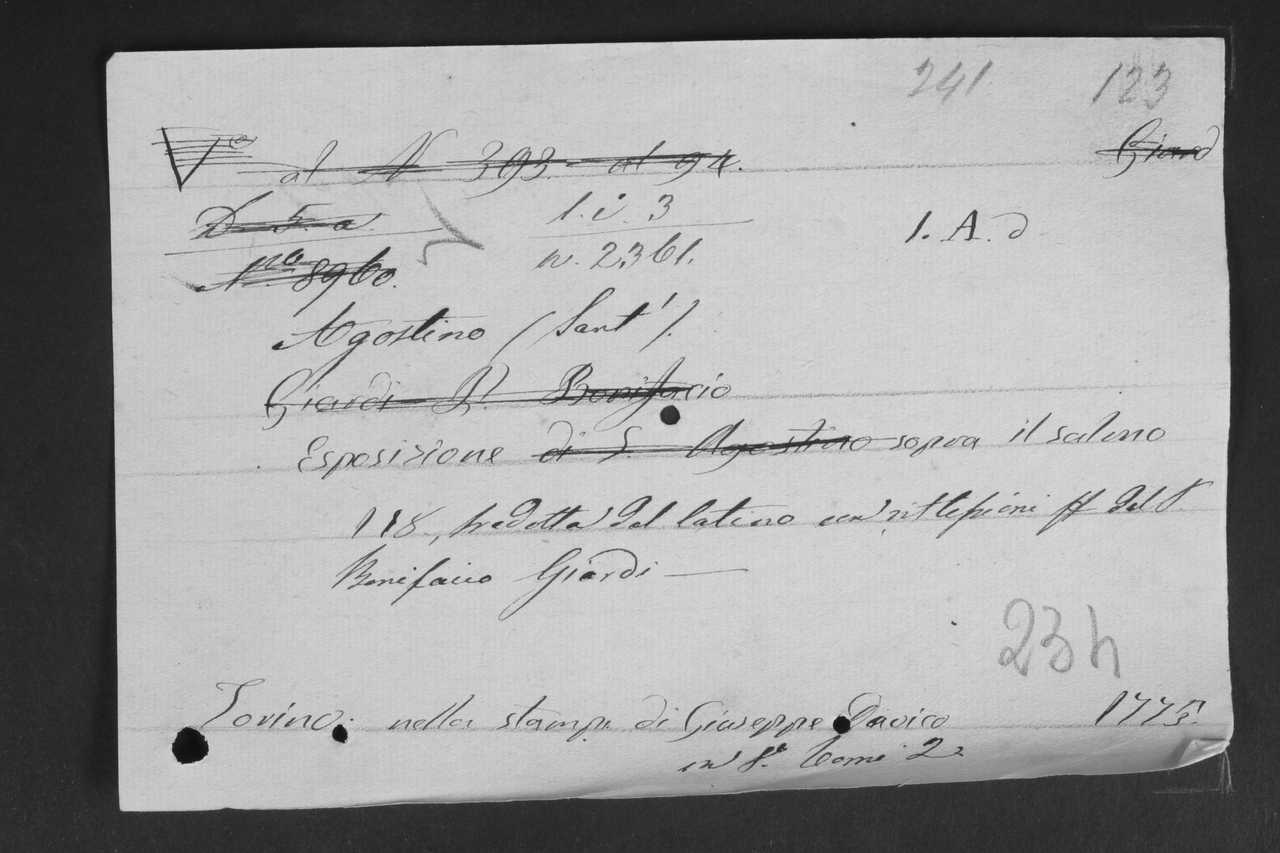 241. 123
Vo al N 393. al 94. Giard
D. 5. a. 1. i. 3 1. A. d
Nro 8960. n. 2361.
Agostino (Sant').
Giardi P. Bonifacio
Esposizione di S. Agostino sopra il salmo
118, tradotta dal latino con riflessioni del P.
Bonifacio Giardi —
23h
Torino: nella stamp. di Giuseppe Davico 1775.
in 8.o Tomi 2.